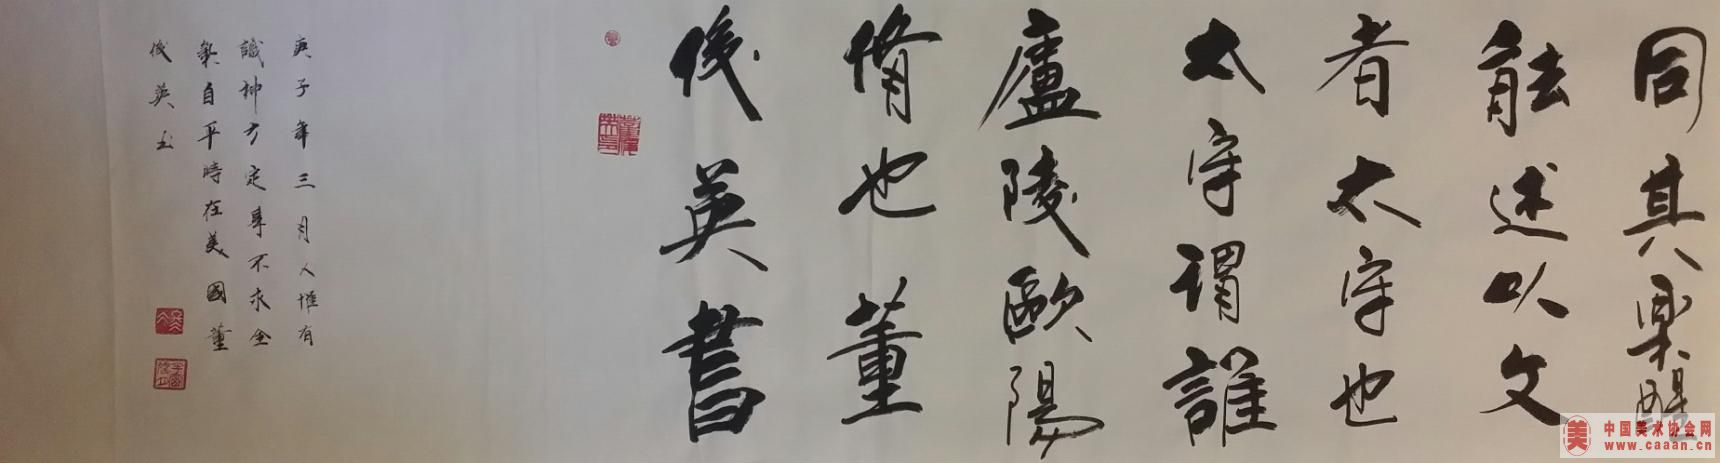 同其樂醒
能述以文
者太守也
太守謂誰
廬陵歐陽
脩也董
後英書
庚子年三月人惟有
識神方定事不求全
氣自平時在美國董
後英書
中国美术协会网
www.caaan.cn